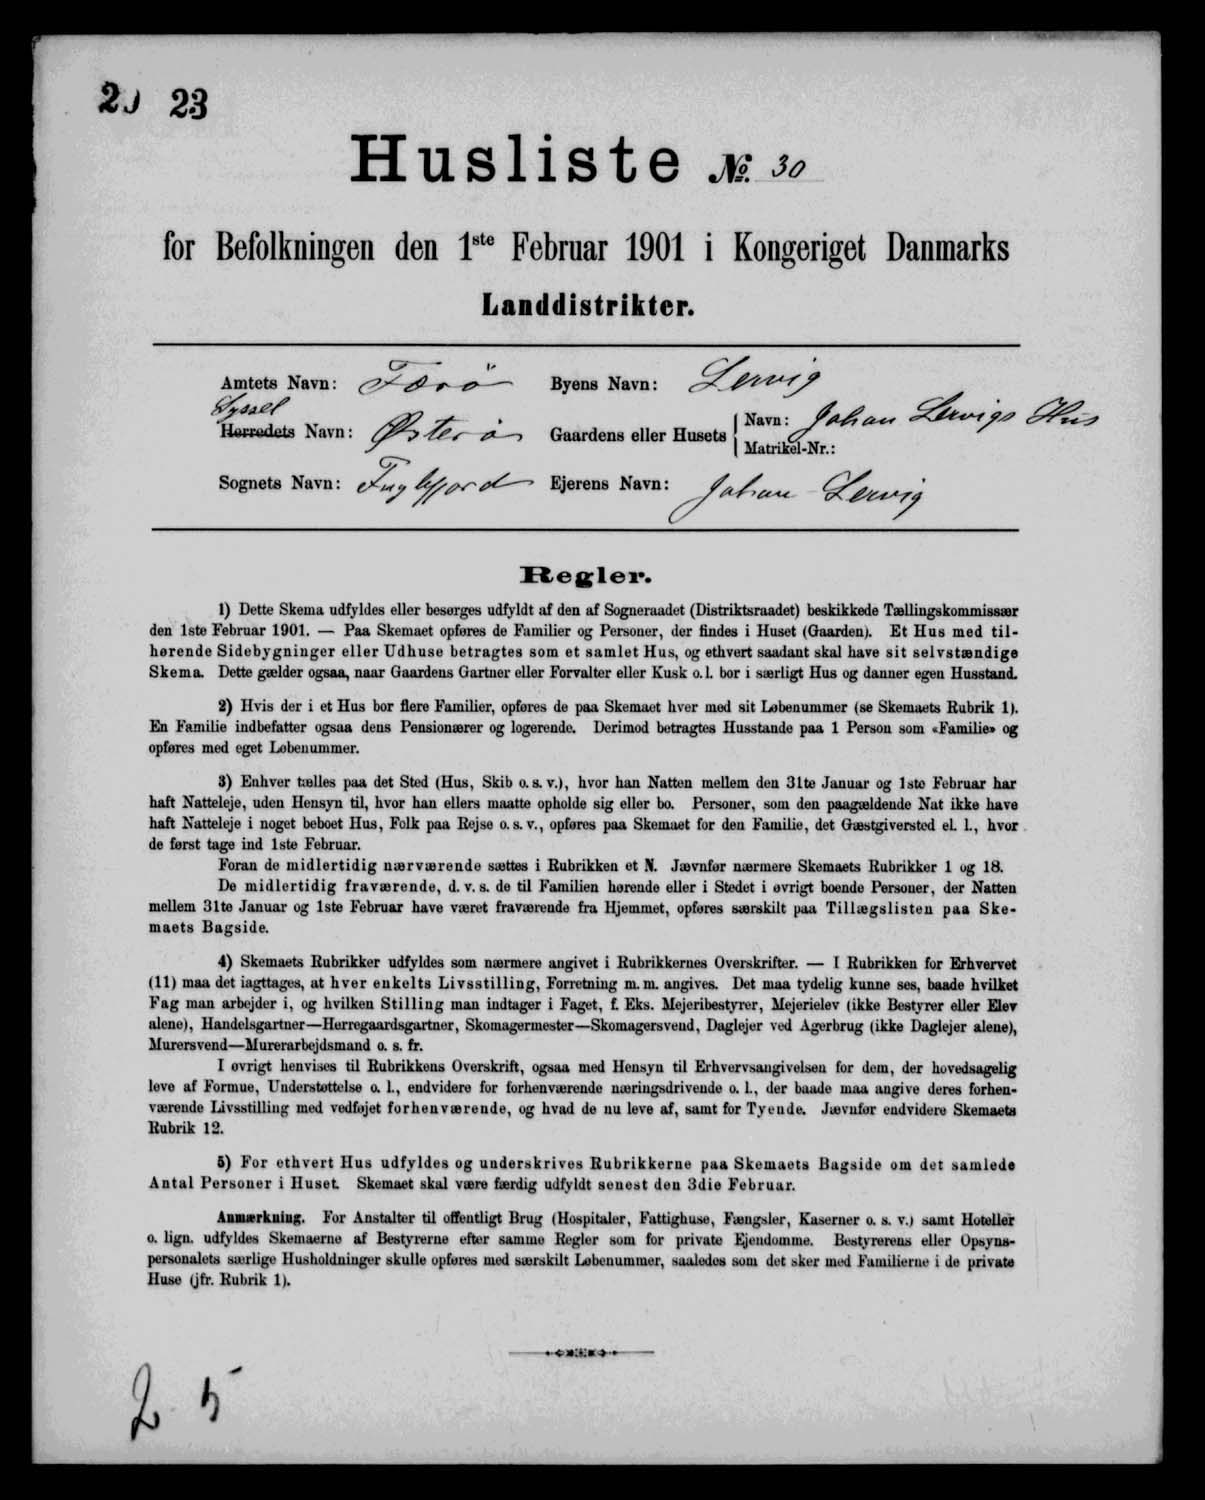 23
Husliste No. 30
for Befolkningen den 1ste Februar 1901 i Kongeriget Danmarks
Landdistrikter.
Amtets Navn: Færö Byens Navn: Lervig
Syssel
Herredets Navn: Østerö Gaardens eller Husets Navn: Johan Lervigs Hus
Matrikel-Nr.:
Sognets Navn: Fuglefjord Ejerens Navn: Johan Lervig
Regler.
1) Dette Skema udfyldes eller besørges udfyldt af den af Sogneraadet (Distriktsraadet) beskikkede Tællingskommissær
den 1ste Februar 1901. — Paa Skemaet opføres de Familier og Personer, der findes i Huset (Gaarden). Et Hus med til-
hørende Sidebygninger eller Udhuse betragtes som et samlet Hus, og ethvert saadant skal have sit selvstændige
Skema. Dette gælder ogsaa, naar Gaardens Gartner eller Forvalter eller Kusk o. l. bor i særligt Hus og danner egen Husstand.
2) Hvis der i et Hus bor flere Familier, opføres de paa Skemaet hver med sit Løbenummer (se Skemaets Rubrik 1).
En Familie indbefatter ogsaa dens Pensionærer og logerende. Derimod betragtes Husstande paa 1 Person som «Familie» og
opføres med eget Løbenummer.
3) Enhver tælles paa det Sted (Hus, Skib o. s. v.), hvor han Natten mellem den 31te Januar og 1ste Februar har
haft Natteleje, uden Hensyn til, hvor han ellers maatte opholde sig eller bo. Personer, som den paagældende Nat ikke have
haft Natteleje i noget beboet Hus, Folk paa Rejse o. s. v., opføres paa Skemaet for den Familie, det Gæstgiversted el. l., hvor
de først tage ind 1ste Februar.
Foran de midlertidig nærværende sættes i Rubrikken et N. Jævnfør nærmere Skemaets Rubrikker 1 og 18.
De midlertidig fraværende, d. v. s. de til Familien hørende eller i Stedet i øvrigt boende Personer, der Natten
mellem 31te Januar og 1ste Februar have været fraværende fra Hjemmet, opføres særskilt paa Tillægslisten paa Ske-
maets Bagside.
4) Skemaets Rubrikker udfyldes som nærmere angivet i Rubrikkernes Overskrifter. — I Rubrikken for Erhvervet
(11) maa det iagttages, at hver enkelts Livsstilling, Forretning m. m. angives. Det maa tydelig kunne ses, baade hvilket
Fag man arbejder i, og hvilken Stilling man indtager i Faget, f. Eks. Mejeribestyrer, Mejerielev (ikke Bestyrer eller Elev
alene), Handelsgartner—Herregaardsgartner, Skomagermester—Skomagersvend, Daglejer ved Agerbrug (ikke Daglejer alene),
Murersvend—Murerarbejdsmand o. s. fr.
I øvrigt henvises til Rubrikkens Overskrift, ogsaa med Hensyn til Erhvervsangivelsen for dem, der hovedsagelig
leve af Formue, Understøttelse o. l., endvidere for forhenværende næringsdrivende o. l., der baade maa angive deres forhen-
værende Livsstilling med vedføjet forhenværende, og hvad de nu leve af, samt for Tyende. Jævnfør endvidere Skemaets
Rubrik 12.
5) For ethvert Hus udfyldes og underskrives Rubrikkerne paa Skemaets Bagside om det samlede
Antal Personer i Huset. Skemaet skal være færdig udfyldt senest den 3die Februar.
Anmærkning. For Anstalter til offentligt Brug (Hospitaler, Fattighuse, Fængsler, Kaserner o. s. v.) samt Hoteller
o. lign. udfyldes Skemaerne af Bestyrerne efter samme Regler som for private Ejendomme. Bestyrerens eller Opsyns-
personalets særlige Husholdninger skulle opføres med særskilt Løbenummer, saaledes som det sker med Familierne i de private
Huse (jfr. Rubrik 1).
2 5